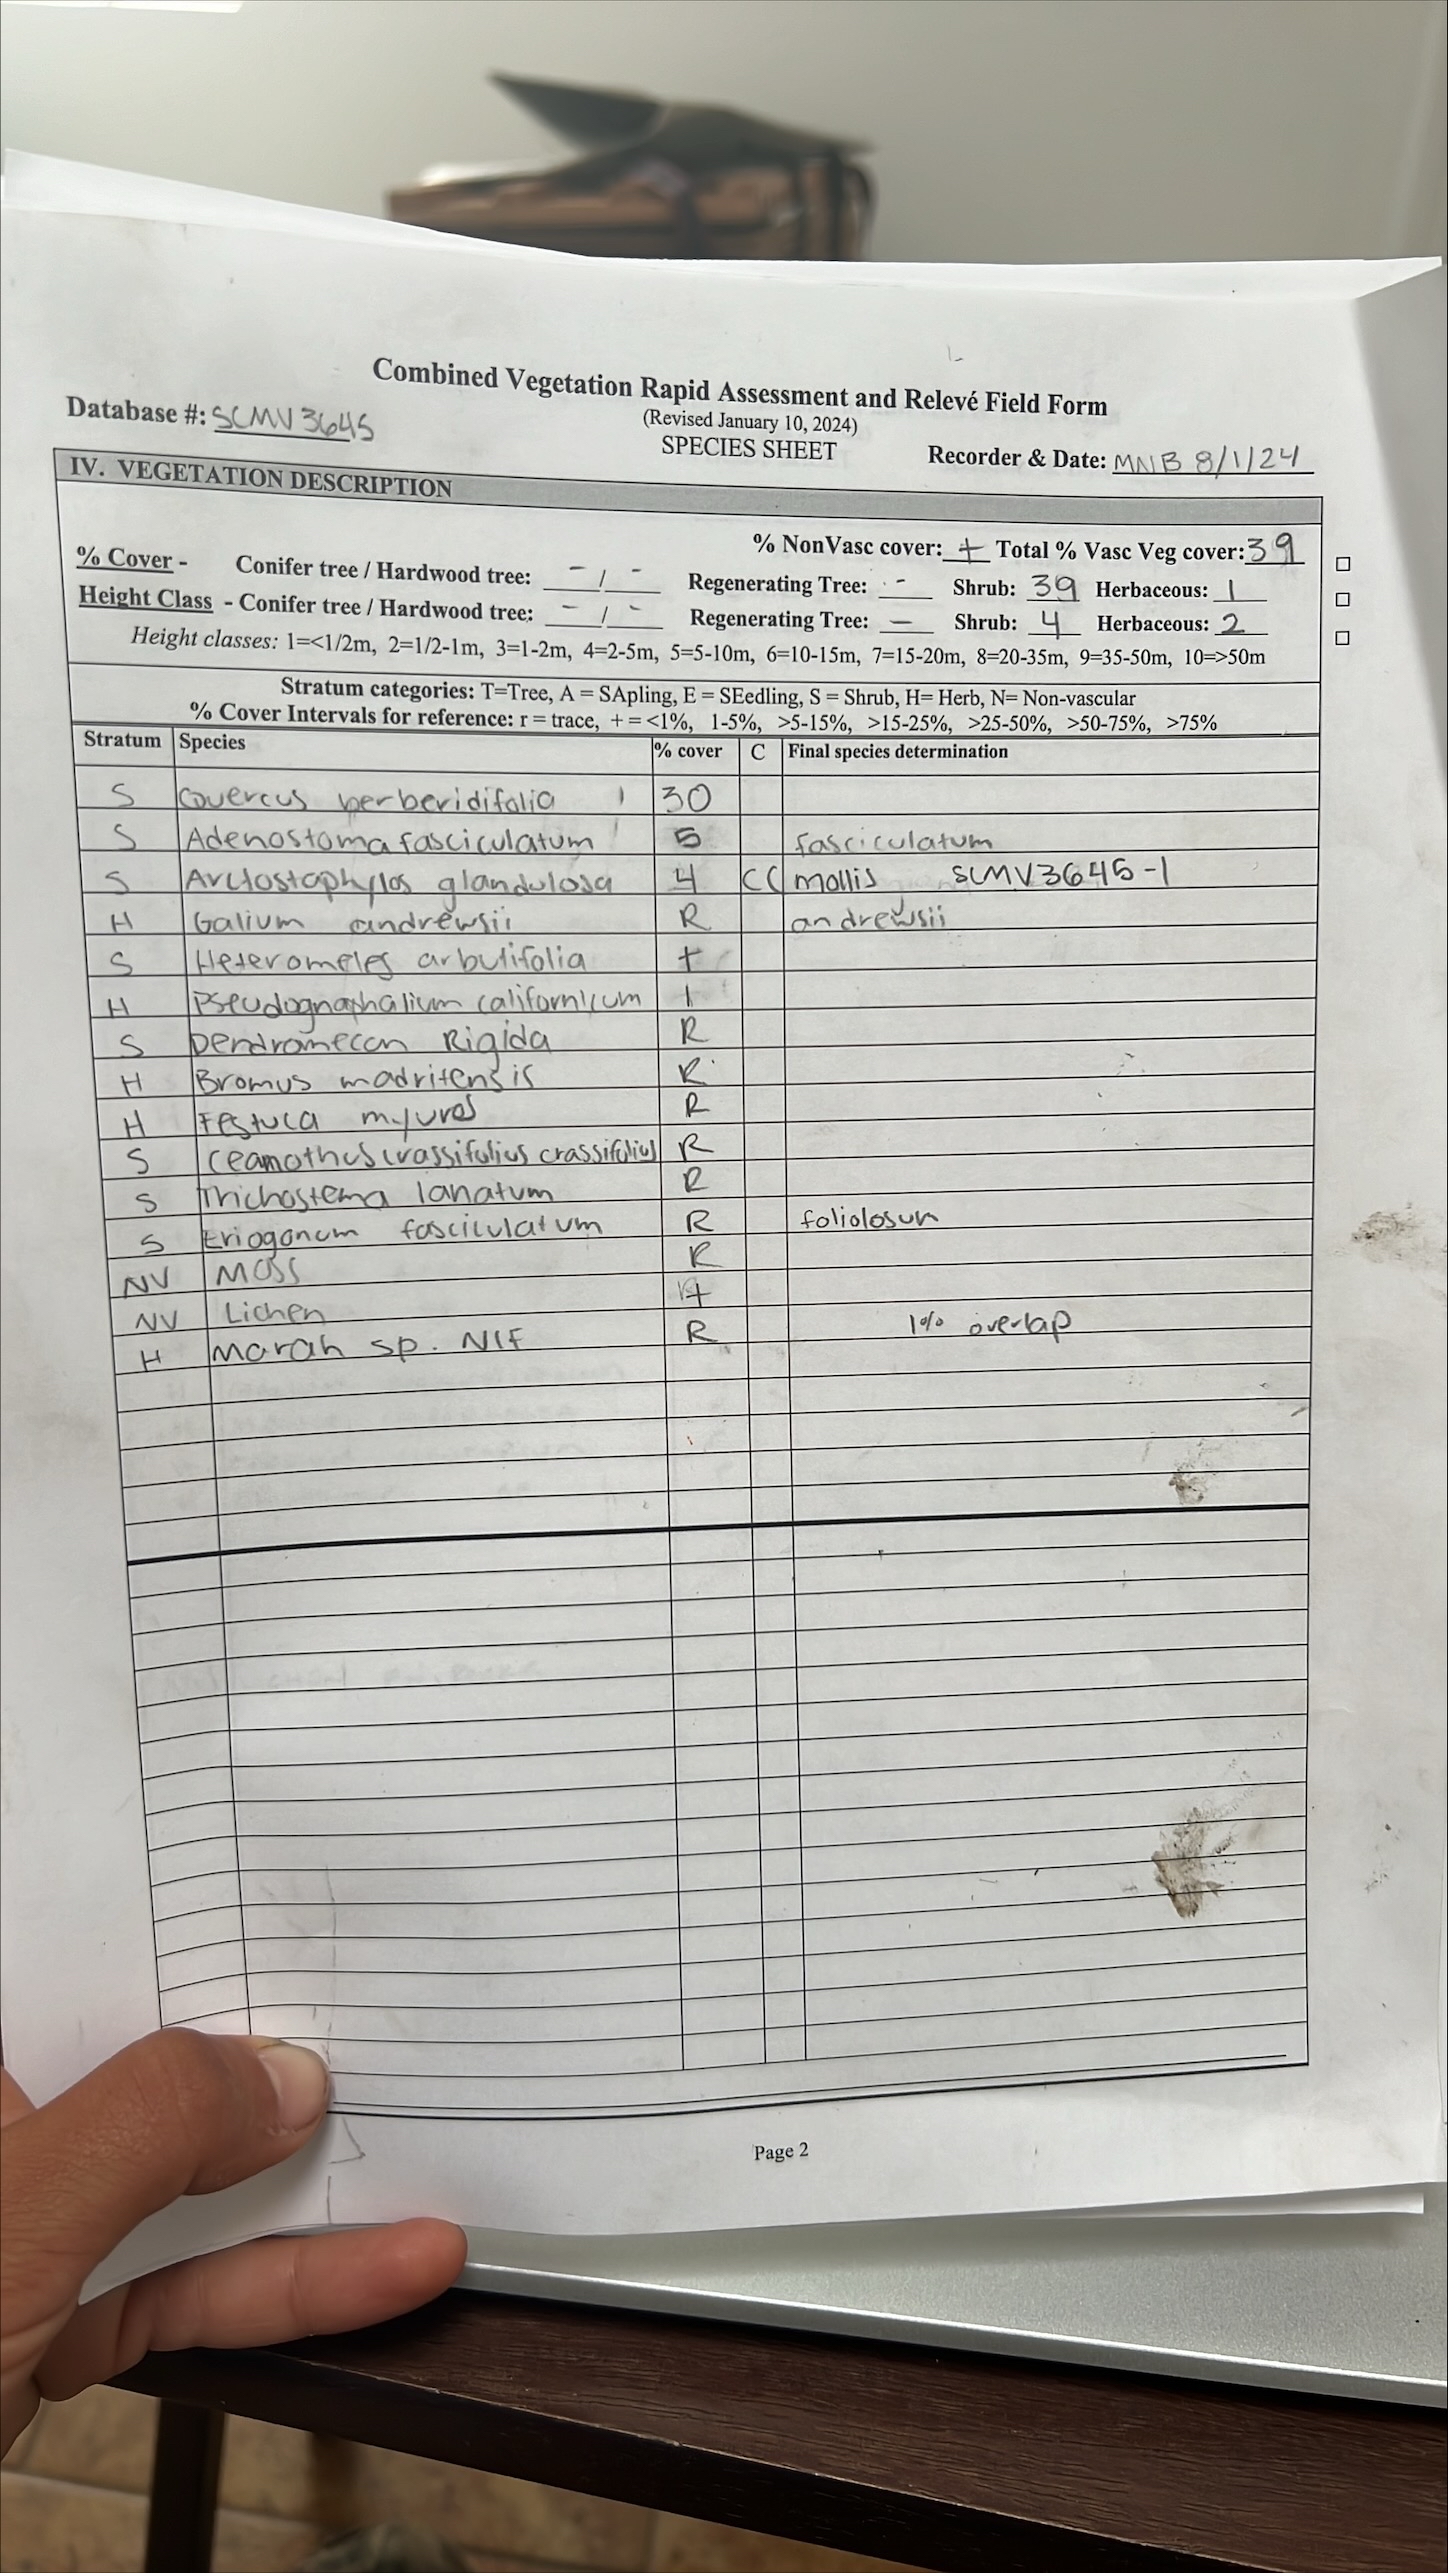 Combined Vegetation Rapid Assessment and Relevé Field Form
(Revised January 10, 2024)
Database #: SCMV3645 SPECIES SHEET Recorder & Date: MNB 8/1/24
IV. VEGETATION DESCRIPTION
% NonVasc cover: + Total % Vasc Veg cover: 39
% Cover - Conifer tree / Hardwood tree: - / - Regenerating Tree: - Shrub: 39 Herbaceous: 1
Height Class - Conifer tree / Hardwood tree: - / - Regenerating Tree: - Shrub: 4 Herbaceous: 2
Height classes: 1=<1/2m, 2=1/2-1m, 3=1-2m, 4=2-5m, 5=5-10m, 6=10-15m, 7=15-20m, 8=20-35m, 9=35-50m, 10=>50m
Stratum categories: T=Tree, A = SApling, E = SEedling, S = Shrub, H= Herb, N= Non-vascular
% Cover Intervals for reference: r = trace, + = <1%, 1-5%, >5-15%, >15-25%, >25-50%, >50-75%, >75%
Stratum Species % cover C Final species determination
S Quercus berberidifolia 30
S Adenostoma fasciculatum 5 fasciculatum
S Arctostaphylos glandulosa 4 CC mollis SCMV3645-1
H Galium andrewsii R andrewsii
S Heteromeles arbutifolia +
H Pseudognaphalium californicum 1
S Dendromecon Rigida R
H Bromus madritensis R
H Festuca myuros R
S Ceanothus crassifolius crassifolius R
S Trichostema lanatum R
S Eriogonum fasciculatum R foliolosum
NV Moss R
NV Lichen +
H Marah sp. NIF R 1% overlap
Page 2